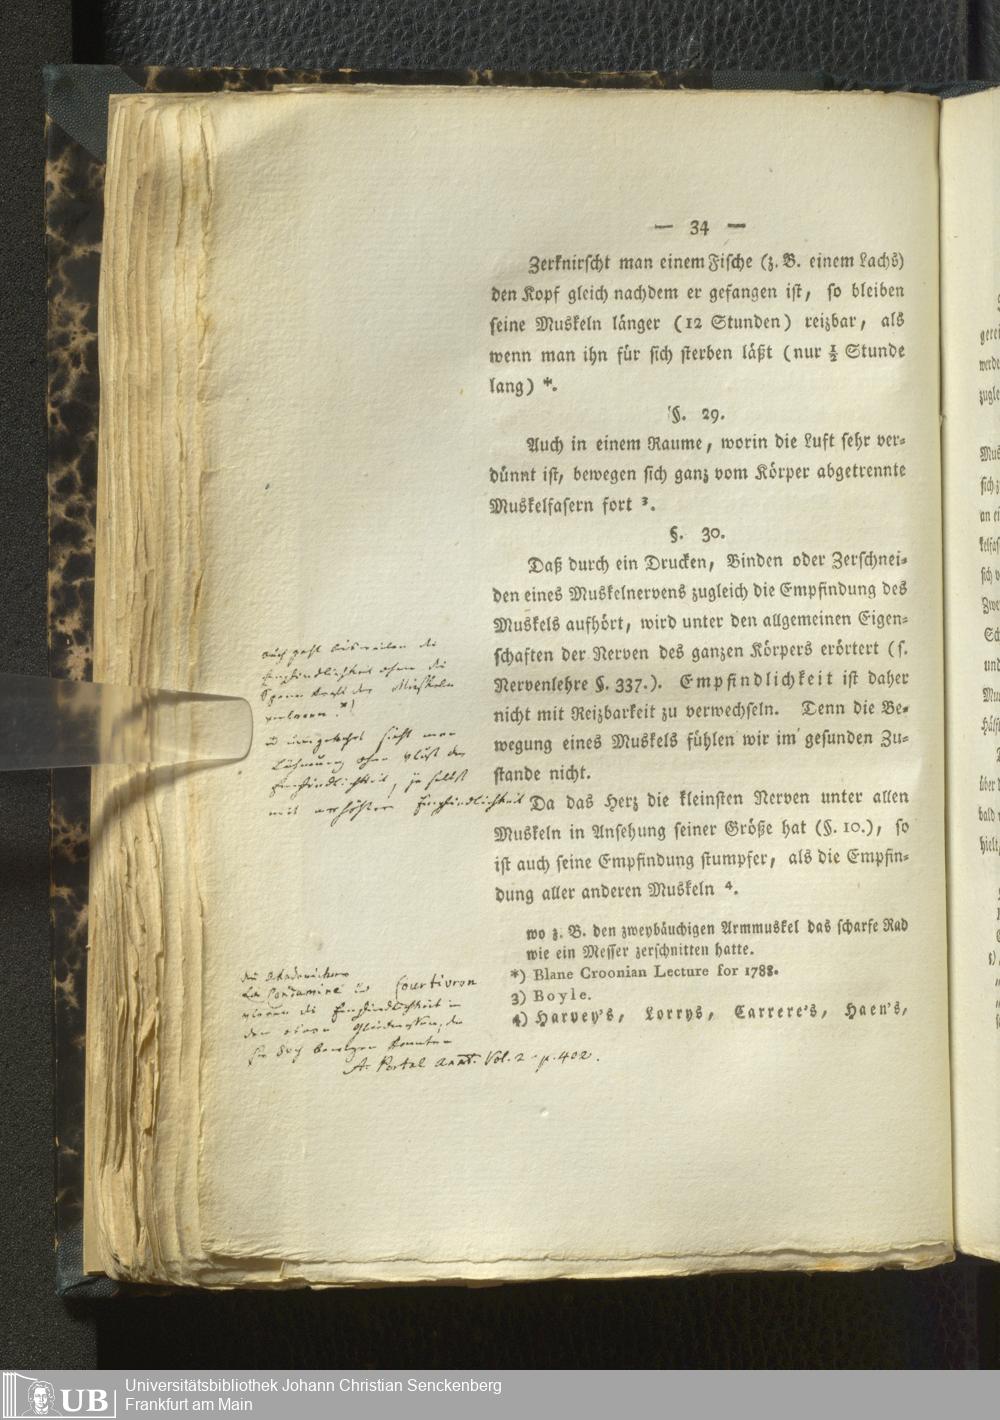 — 34 —
Zerknirscht man einem Fische (z. B. einem Lachs)
den Kopf gleich nachdem er gefangen ist, so bleiben
seine Muskeln länger (12 Stunden) reizbar, als
wenn man ihn für sich sterben läßt (nur ½ Stunde
lang) *.
§. 29.
Auch in einem Raume, worin die Luft sehr ver-
dünnt ist, bewegen sich ganz vom Körper abgetrennte
Muskelfasern fort ³.
§. 30.
Daß durch ein Drucken, Binden oder Zerschnei-
den eines Muskelnervens zugleich die Empfindung des
Muskels aufhört, wird unter den allgemeinen Eigen-
schaften der Nerven des ganzen Körpers erörtert (s.
Nervenlehre §. 337.). Empfindlichkeit ist daher
nicht mit Reizbarkeit zu verwechseln. Denn die Be-
wegung eines Muskels fühlen wir im gesunden Zu-
stande nicht.
Da das Herz die kleinsten Nerven unter allen
Muskeln in Ansehung seiner Größe hat (§. 10.), so
ist auch seine Empfindung stumpfer, als die Empfin-
dung aller anderen Muskeln ⁴.
wo z. B. den zweybäuchigen Armmuskel das scharfe Rad
wie ein Messer zerschnitten hatte.
*) Blane Croonian Lecture for 1788.
3) Boyle.
4) Harvey's, Lorrys, Carrere's, Haen's,
auch geht bisweilen die
Empfindlichkeit ohne die
Spannkraft der Muskeln
verloren *)
umgekehrt sieht man
Lähmung ohne Verlust der
Empfindlichkeit, ja selbst
mit erhöhter Empfindlichkeit
La Condamine Courtivron
die Empfindlichkeit in
den Gliedmaßen, die
sie doch bewegen konnten
A. Portal Anat. Vol. 2 p. 402.
Universitätsbibliothek Johann Christian Senckenberg
Frankfurt am Main
UB